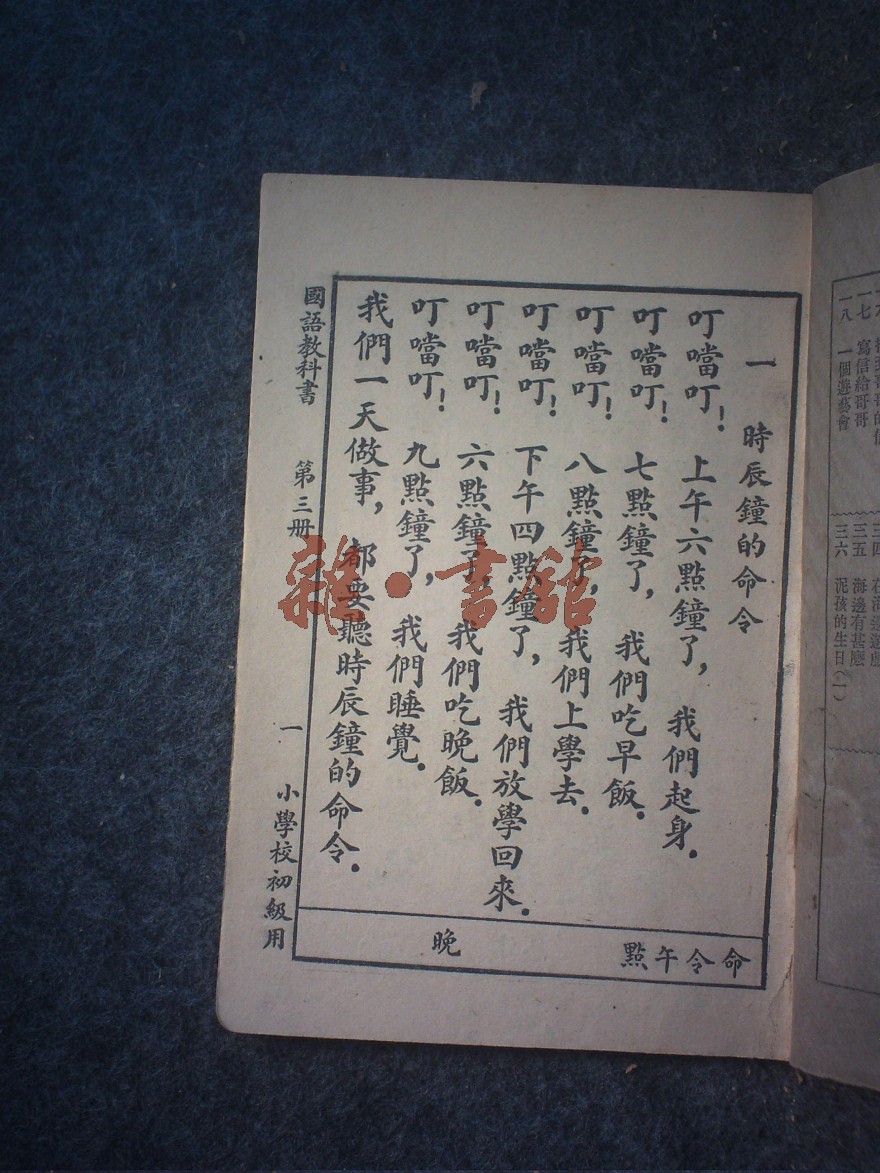 一 時辰鐘的命令
叮噹叮! 上午六點鐘了, 我們起身.
叮噹叮! 七點鐘了, 我們吃早飯.
叮噹叮! 八點鐘了, 我們上學去.
叮噹叮! 下午四點鐘了, 我們放學回來.
叮噹叮! 六點鐘了, 我們吃晚飯.
叮噹叮! 九點鐘了, 我們睡覺.
我們一天做事, 都要聽時辰鐘的命令.
命令午點
晚
國語教科書 第三册 一 小學校初級用
一七 寫信給哥哥
一八 一個遊藝會
三四
三五 海邊有甚麽
三六 泥孩的生日(一)
雜·書館